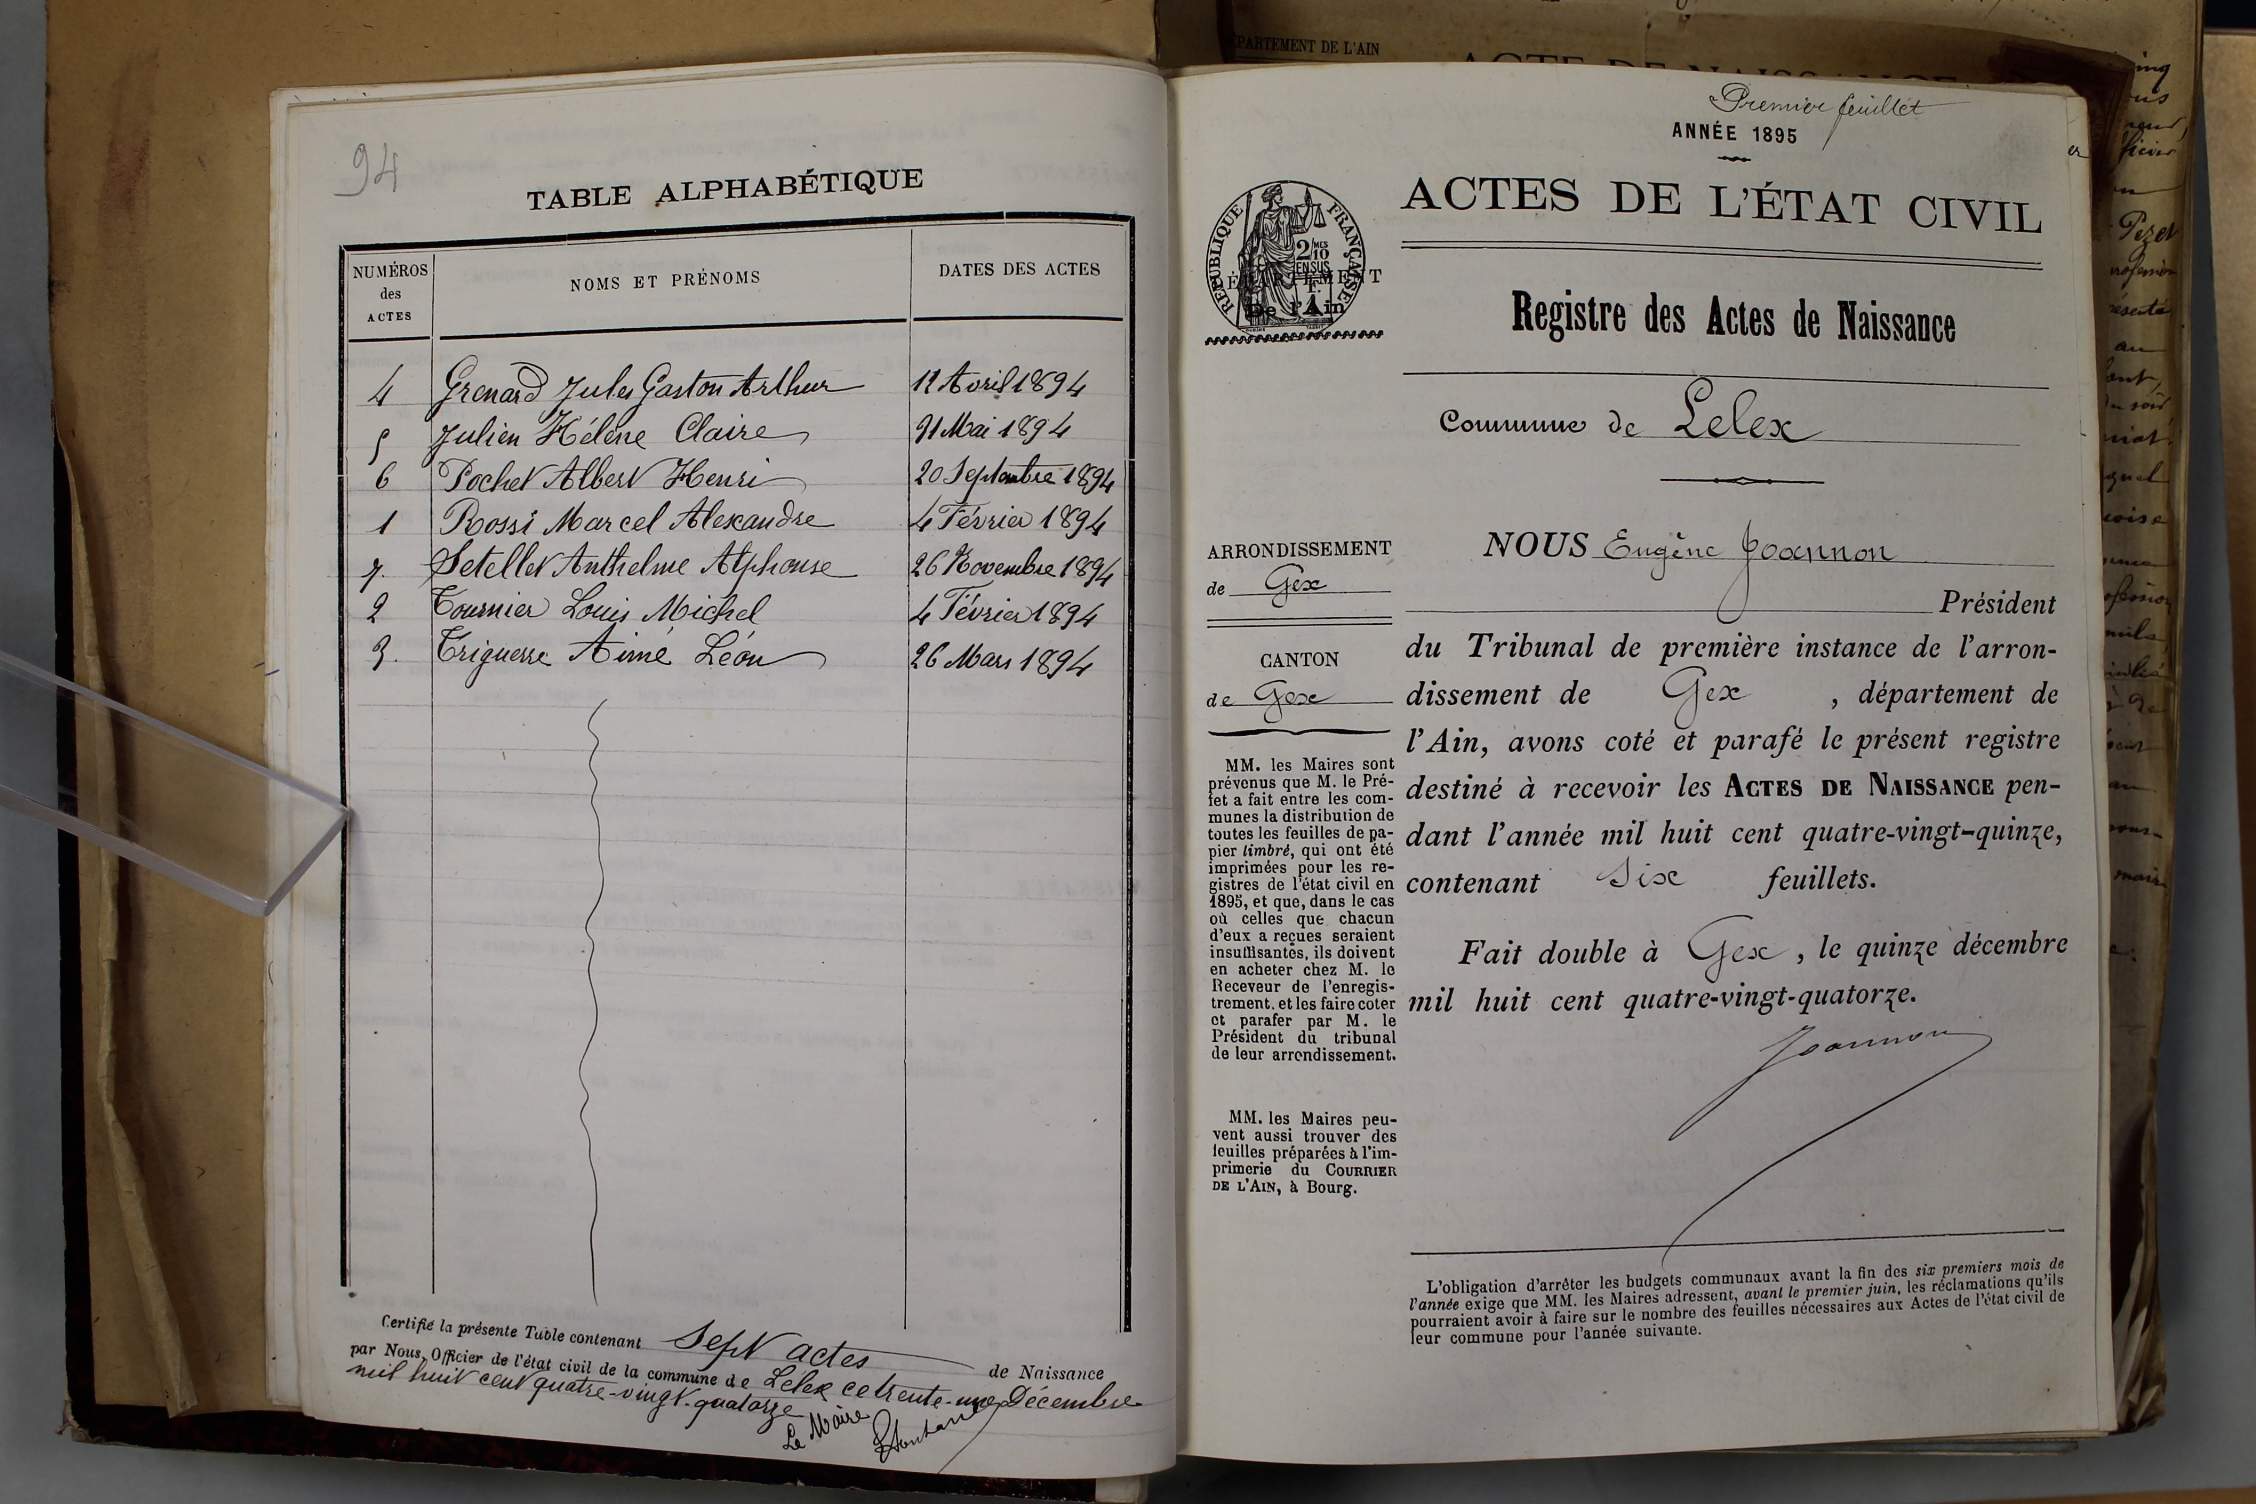 94
TABLE ALPHABÉTIQUE
NUMÉROS
des
ACTES
NOMS ET PRÉNOMS
DATES DES ACTES
4 Grenard Jules Gaston Arthur 12 Avril 1894
5 Julien Hélène Claire 31 Mai 1894
6 Pochet Albert Henri 20 Septembre 1894
1 Rossi Marcel Alexandre 4 Février 1894
7. Setellet Anthelme Alphonse 26 Novembre 1894
2 Tournier Louis Michel 4 Février 1894
3. Triguerre Aimé Léon 26 Mars 1894
Certifié la présente Table contenant Sept actes de Naissance
par Nous, Officier de l'état civil de la commune de Lelex ce trente-une Décembre
mil huit cent quatre-vingt-quatorze
Le Maire
DÉPARTEMENT DE L'AIN
ACTE DE NAISSANCE
Premier feuillet
ANNÉE 1895
ACTES DE L'ÉTAT CIVIL
RÉPUBLIQUE FRANÇAISE
2/10 MES
EN SUS
1 F.
DÉPARTEMENT
De l'Ain
Registre des Actes de Naissance
Commune de Lelex
ARRONDISSEMENT
de Gex
CANTON
de Gex
MM. les Maires sont
prévenus que M. le Pré-
fet a fait entre les com-
munes la distribution de
toutes les feuilles de pa-
pier timbré, qui ont été
imprimées pour les re-
gistres de l'état civil en
1895, et que, dans le cas
où celles que chacun
d'eux a reçues seraient
insuffisantes, ils doivent
en acheter chez M. le
Receveur de l'enregis-
trement, et les faire coter
et parafer par M. le
Président du tribunal
de leur arrondissement.
MM. les Maires peu-
vent aussi trouver des
feuilles préparées à l'im-
primerie du COURRIER
DE L'AIN, à Bourg.
NOUS Eugène Joannon
Président
du Tribunal de première instance de l'arron-
dissement de Gex, département de
l'Ain, avons coté et parafé le présent registre
destiné à recevoir les ACTES DE NAISSANCE pen-
dant l'année mil huit cent quatre-vingt-quinze,
contenant Six feuillets.
Fait double à Gex, le quinze décembre
mil huit cent quatre-vingt-quatorze.
Joannon
L'obligation d'arrêter les budgets communaux avant la fin des six premiers mois de
l'année exige que MM. les Maires adressent, avant le premier juin, les réclamations qu'ils
pourraient avoir à faire sur le nombre des feuilles nécessaires aux Actes de l'état civil de
leur commune pour l'année suivante.